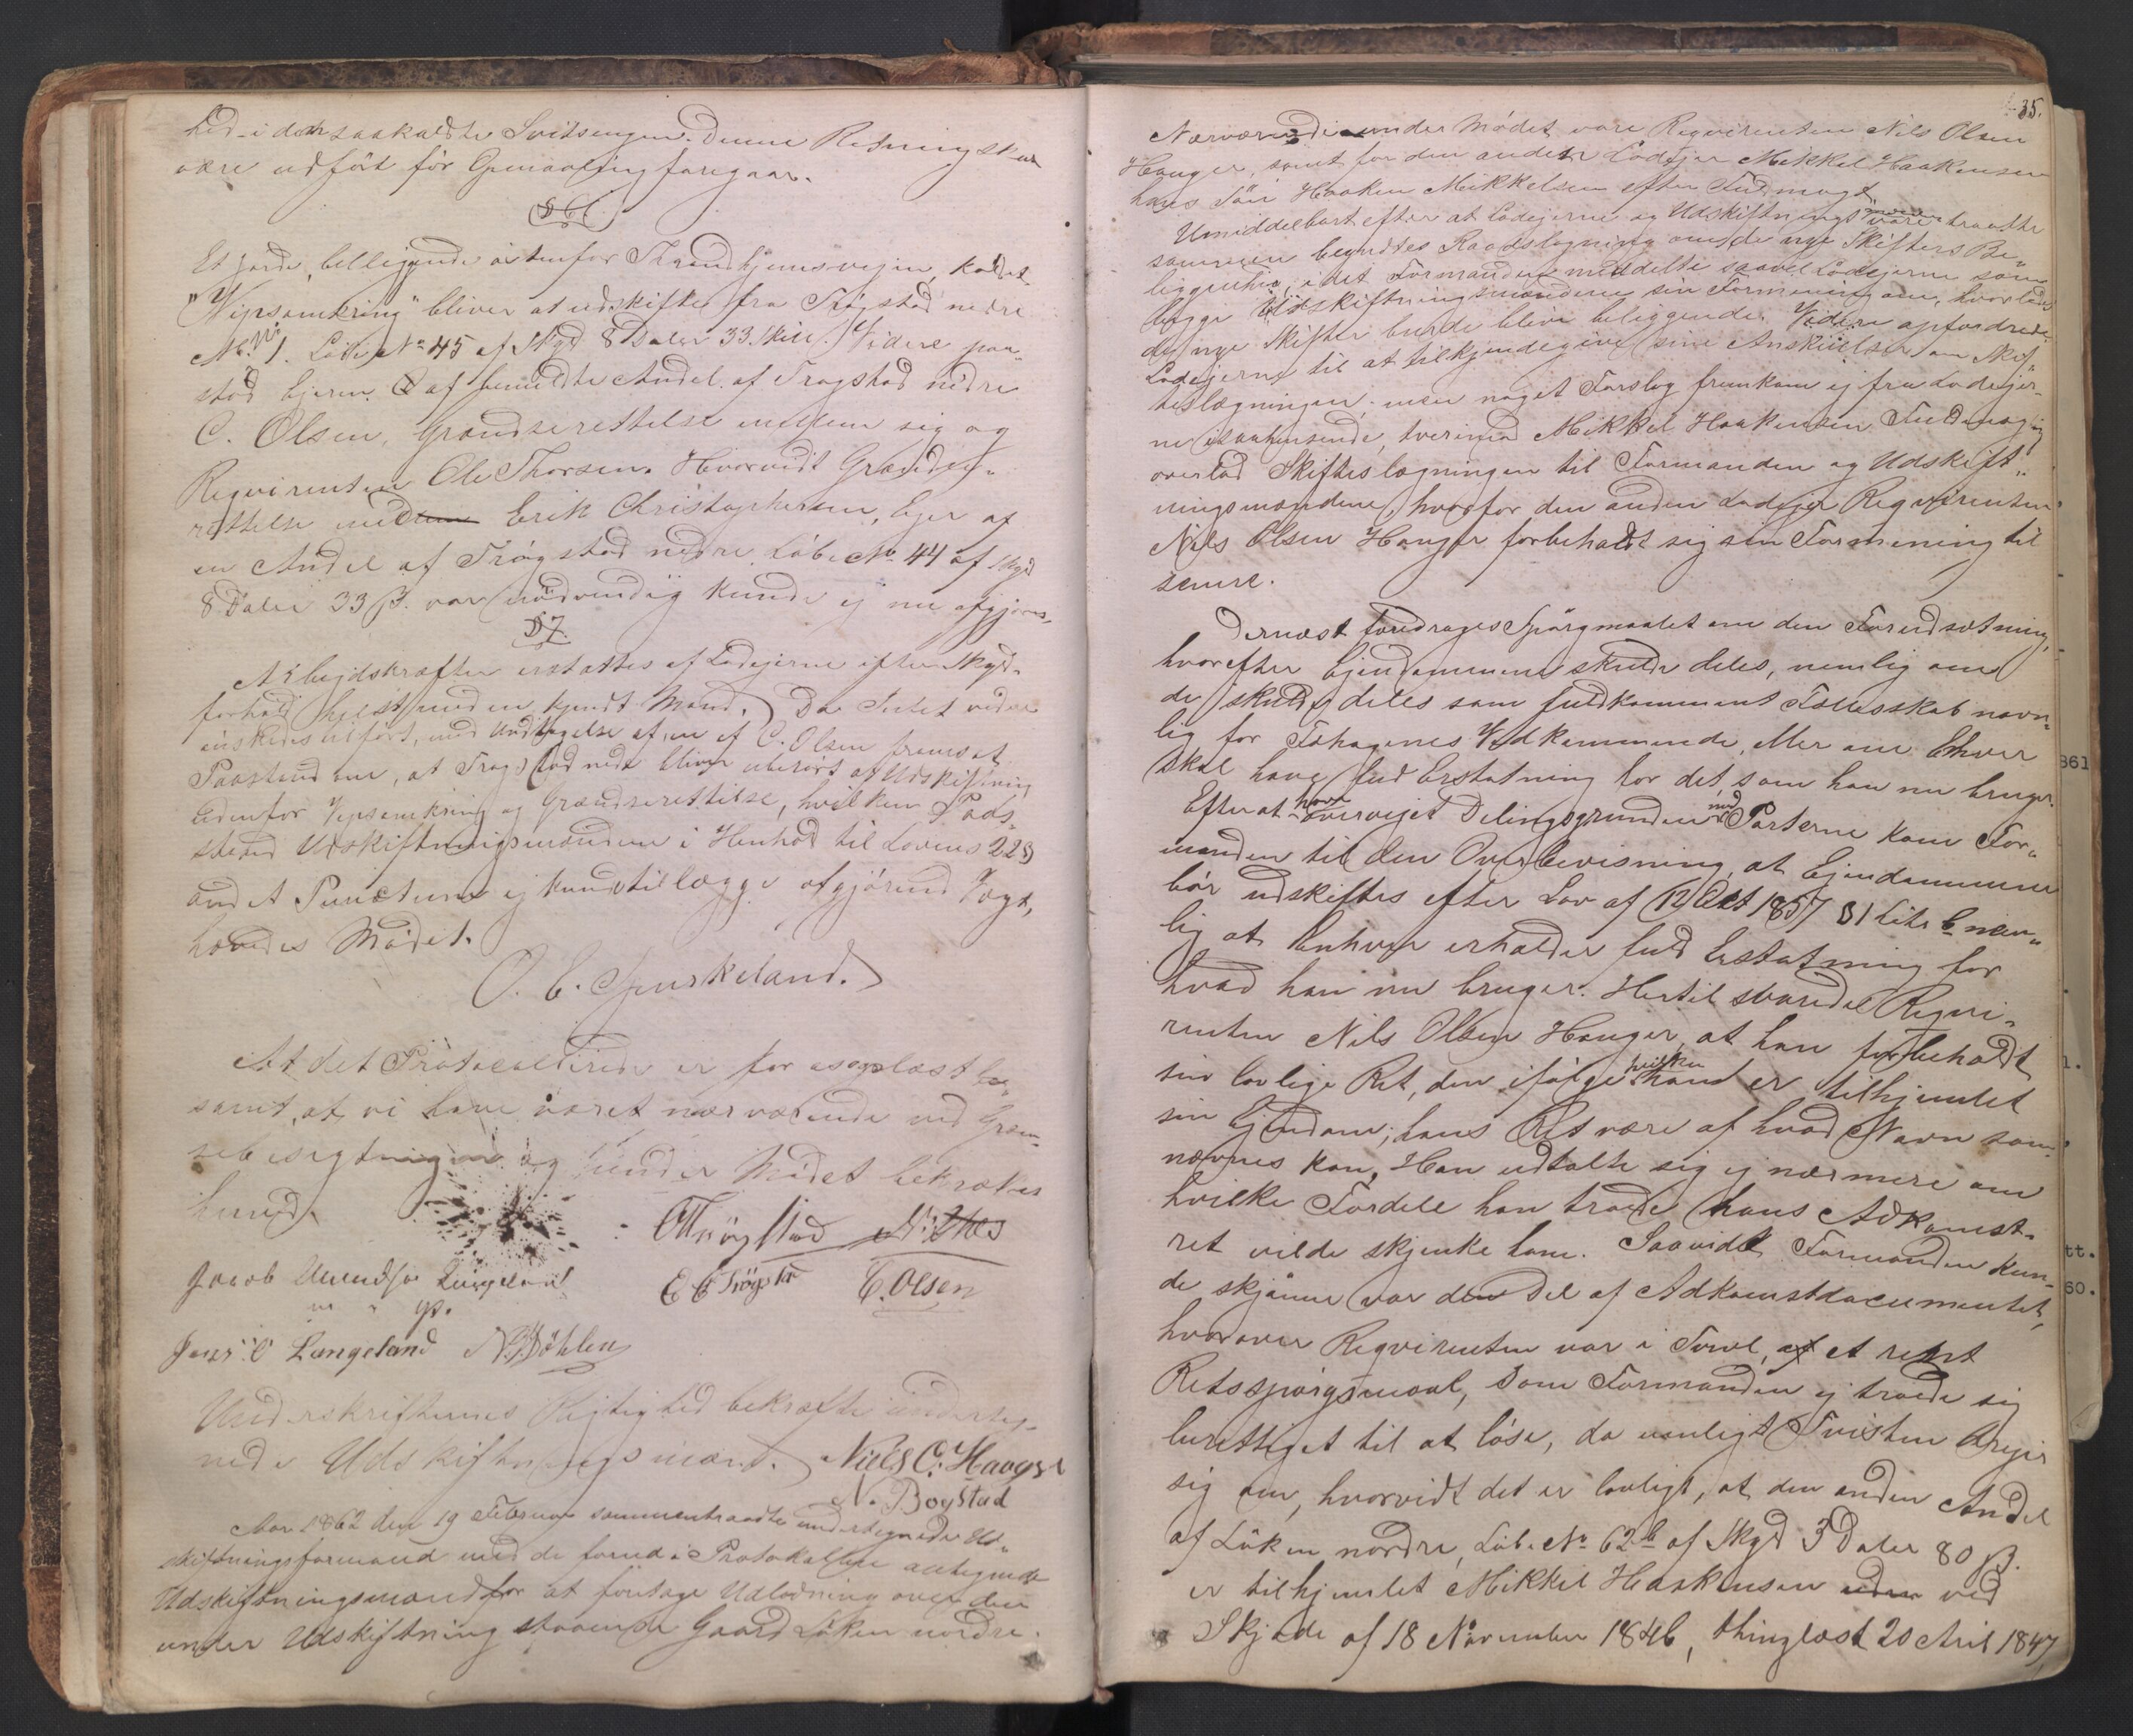 hed i den saakaldte Svitsengen. Denne Retning skal
være udført før Opmaaling foregaar.
§ 6.
Et Jorde, belliggende østenfor Throndhjemsvejen, kaldet
"Vipsomkring" bliver at udskifte fra Trøgstad nedre
Mt. No 1. Løbe No 45 af Skyld 8 Daler 33 Skill. Videre paa-
stod Ejeren af bemeldte Andel af Trøgstad nedre
C. Olsen, Grændserettelse mellem sig og
Reqvirenten Ole Thorsen. Hvorvidt Grændse-
rettelse med Erik Christophersen, Ejer af
en Andel af Trøgstad nedre Løbe No 44 af Skyld
8 Daler 33 ß. var nødvendig kunde ej nu afgjøres.
§ 7.
Arbejdskraften erstattes af Lodejerne efter Skyld-
forhold helst med en kjendt Mand. Da Intet videre
ønskedes tilført, med Undtagelse af en af C. Olsen fremsat
Paastand om, at Trøgstad nedre bliver uberørt af Udskiftning
udenfor Vipsomkring og Grændserettelse, hvilken Paa-
stand Udskiftningsmændene i Henhold til Lovens 22 §
andet Punctum ej kunde tillægge afgjørende Vægt,
hævedes Mødet.
O. E. Spurkeland.
At det Protocollerede er for os oplæst
samt, at vi have været nærværende ved Græn-
sebesigtningen og under Mødet bekræftes
herved.
OTrøgstad
Jacob Amundsen Langeland
m. p.
E C Trøgstad C. Olsen
Jens O Langeland N. Døhlen
Underskrifternes Rigtighed bekræfte underteg-
nede Udskiftningsmænd. Niels O. Hauger
N. Bogstad
Aar 1862 den 19 Februar sammentraadte undertegnede Ud-
skiftningsformand med de forud i Protokollen antegnede
Udskiftningsmænd for at foretage Udlodning over den
under Udskiftning staaende Gaard Løken nordre.
35.
Nærværende under Mødet vare Reqvirenten Nils Olsen
Hauger, samt for den anden Lodejer Mikkel Haakensen
hans Søn Haaken Mikkelsen efter Fuldmagt.
Umiddelbart efter at Lodejerne og Udskiftningsmænd vare traadte
sammen begyndtes Raadslagning om de nye Skifters Be-
liggenhed, idet Formanden meddelte saavel Lodejerne som
begge Udskiftningsmændene sin Formening om, hvorledes
de nye Skifter burde blive beliggende. Videre opfordredes
Lodejerne til at tilkjendegive sine Anskuelser om Skif-
teslægningen; men noget Forslag fremkom ej fra Lodejer-
ne i saahenseende, tverimod Mikkel Haakensen Fuldmægtig
overlod Skifteslægningen til Formanden og Udskift-
ningsmændene, hvorfor den anden Lodejer Reqvirenten
Nils Olsen Hauger forbeholdt sig sin Formening til
senere.
Dernæst foredrages Spørgmaalet om den Forudsætning,
hvorefter Ejendommene skulde deles, nemlig om
de skulde deles som fuldkomment Fællesskab navn-
lig for Fæhagenes Vedkommende, eller om Enhver
skal have fuld Erstatning for det, som han nu bruger.
Efter at have overvejet Delingsgrunden med Parterne kom For-
manden til den Overbevisning, at Ejendommene
bør udskiftes efter Lov af 12 Oct 1857 § 1 Litr b nem-
lig at Enhver erholder fuld Erstatning for
hvad han nu bruger. Hertil svarede Reqvi-
renten Nils Olsen Hauger, at han forbeholdt
sin lovlige Ret, den ifølge hvilken han er tilhjemlet
sin Ejendom; hans Ret være af hvad Navn som
nævnes kan. Han udtalte sig ej nærmere om
hvilke Fordele han troede hans Adkomst-
ret vilde skjenke ham. Saavidt Formanden kun-
de skjønne var den Del af Adkomstdocumentet,
hvorover Reqvirenten var i Tvivl, af et rent
Retsspørgsmaal, som Formanden ej troede sig
berettiget til at løse, da nemlig Tvisten drejer
sig om, hvorvidt det er lovligt, at den anden Andel
af Løken nordre, Løbe No 62b af Skyld 3 Daler 80 ß.
er tilhjemlet Mikkel Haakensen uden ved
Skjøde af 18 November 1846, thinglæst 20 April 1847,
861
1.
tt.
60.